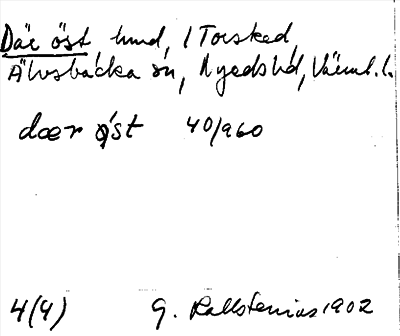 Där öst, hmd, i Torsked,
Älvsbacka sn, Nyeds hd, Värml. l.
dær øst 40/960
4(4) G. Kallstenius 1902